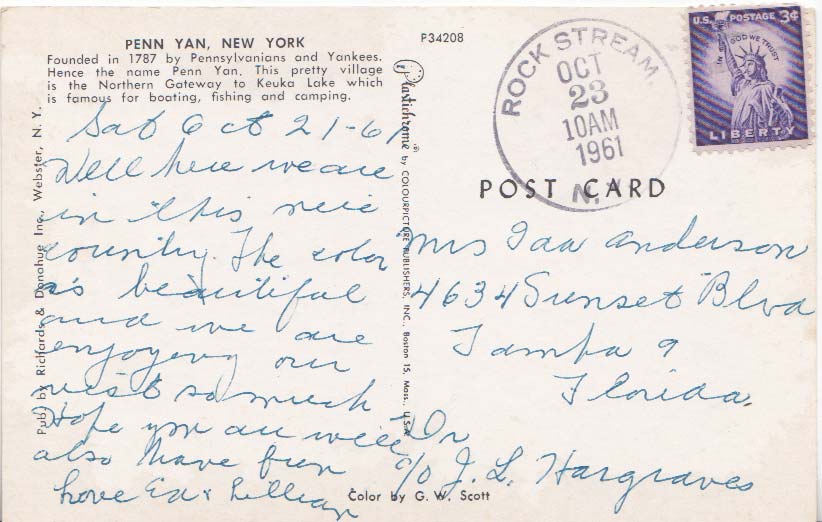 PENN YAN, NEW YORK
Founded in 1787 by Pennsylvanians and Yankees.
Hence the name Penn Yan. This pretty village
is the Northern Gateway to Keuka Lake which
is famous for boating, fishing and camping.
Pub. by Richards & Donohue Inc., Webster, N. Y.
Sat Oct 21-61
Well here we are
in this nice
country. The color
is beautiful
and we are
enjoying our
visit so much
Hope you are well
also have fun
Love Ed & Lillian
P34208
Plastichrome ® by COLOURPICTURE PUBLISHERS, INC., Boston 15, Mass., U.S.A.
Color by G. W. Scott
ROCK STREAM,
OCT
23
10AM
1961
N.Y.
U.S. POSTAGE 3¢
IN GOD WE TRUST
LIBERTY
POST CARD
Mrs Ida Anderson
4634 Sunset Blvd
Tampa 9
Florida.
Dr
c/o J. L. Hargraves